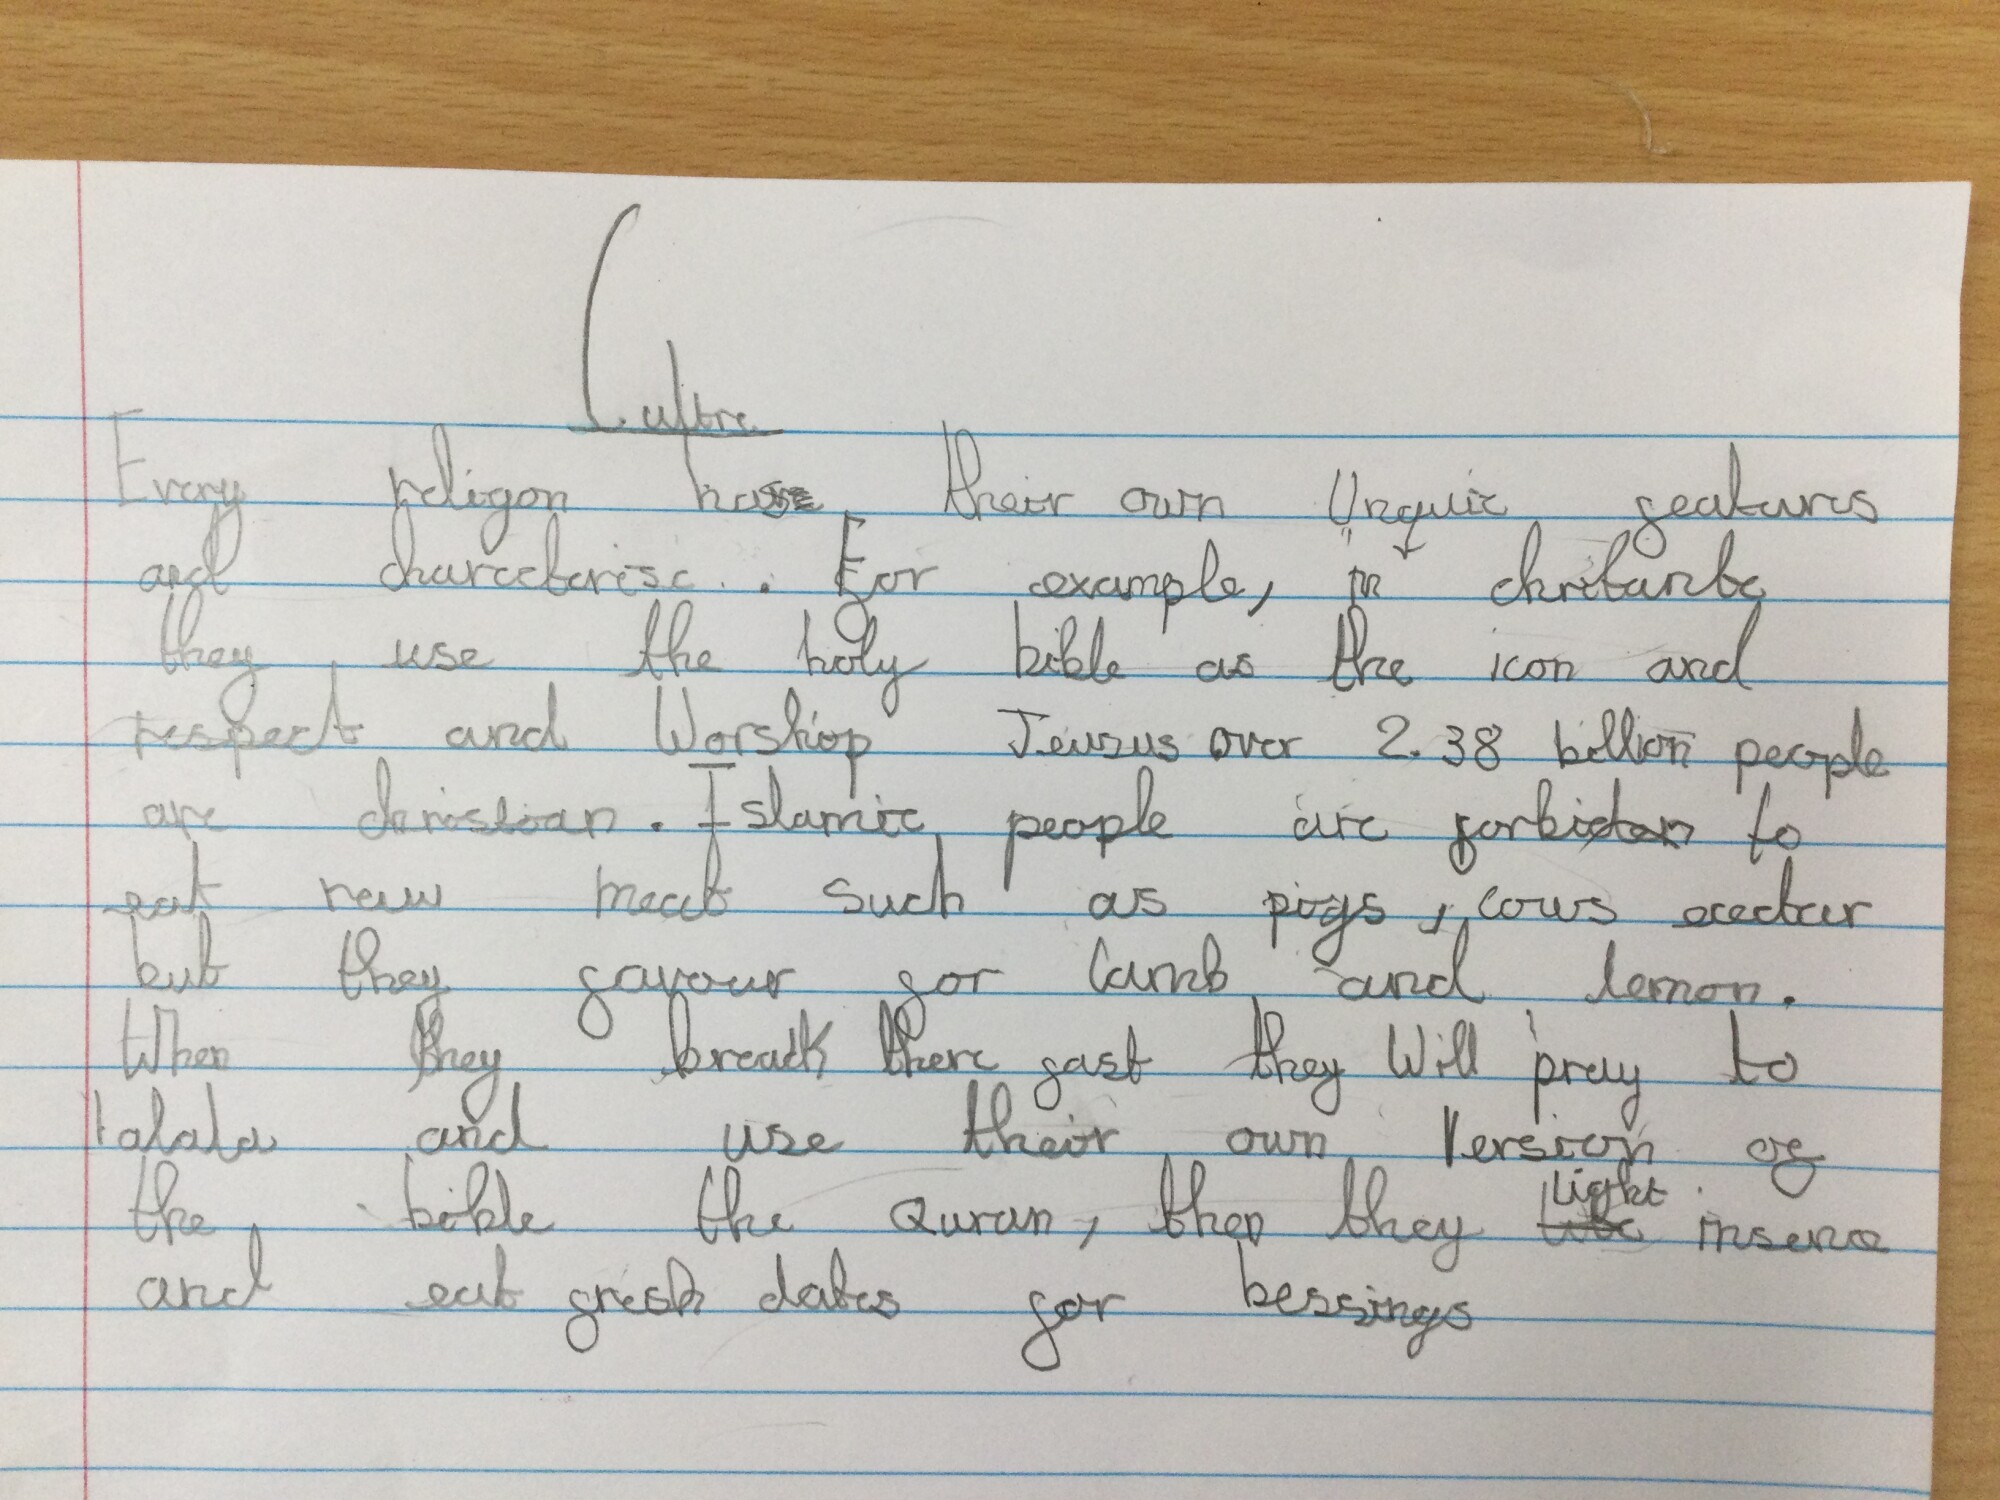 Cultre
Every religon have their own Unquie features
and charecterisc. For example, in chritante
they use the holy bible as the icon and
respect and Worship Jeusus over 2.38 billion people
are christian. Islamic people are forbidan to
eat raw meat such as pigs, cows ecectur
but they favour for lamb and lemon.
When they break there fast they Will pray to
talala and use their own Version of
the bible the Quran, then they light insence
and eat fresh dates for bessings